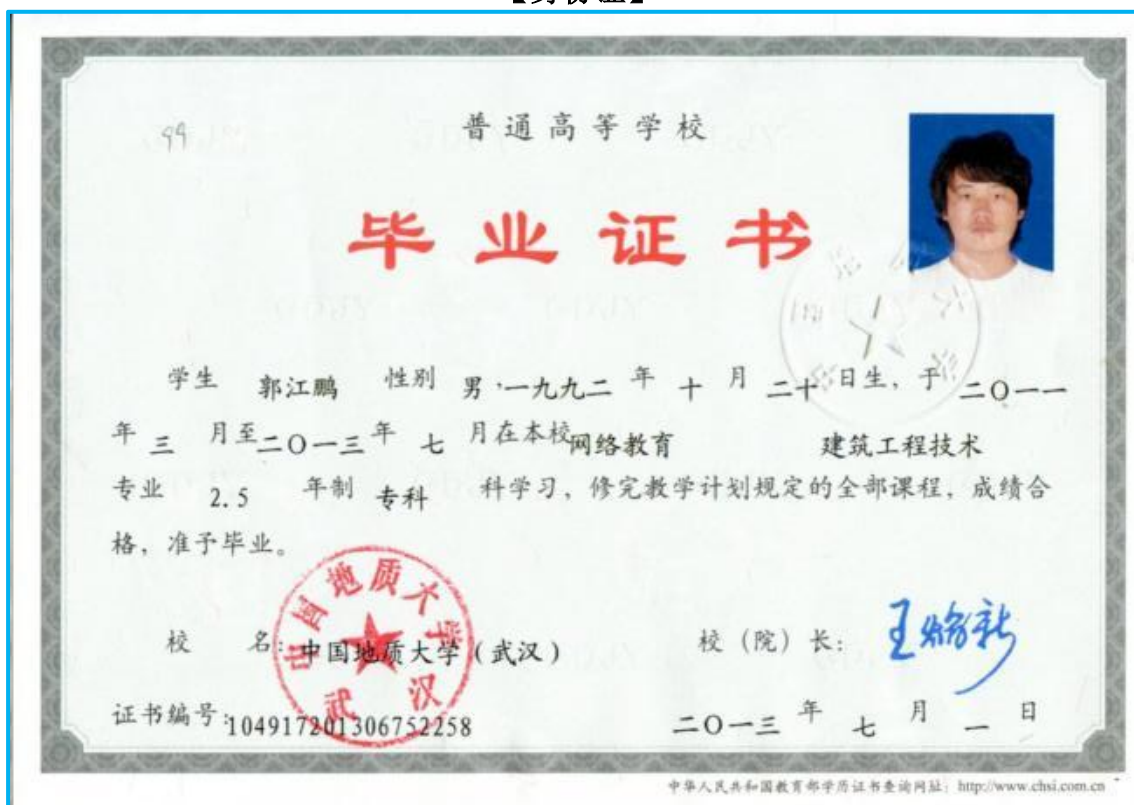 99
普通高等学校
毕业证书
学生 郭江鹏 性别 男，一九九二 年 十 月 二十 日生，于 二〇一一
年 三 月至 二〇一三 年 七 月在本校 网络教育 建筑工程技术
专业 2.5 年制 专科 科学习，修完教学计划规定的全部课程，成绩合
格，准予毕业。
中国地质大学
武汉
校 名：中国地质大学（武汉） 校（院）长：
证书编号：104917201306752258 二〇一三 年 七 月 一 日
中华人民共和国教育部学历证书查询网址：http://www.chsi.com.cn